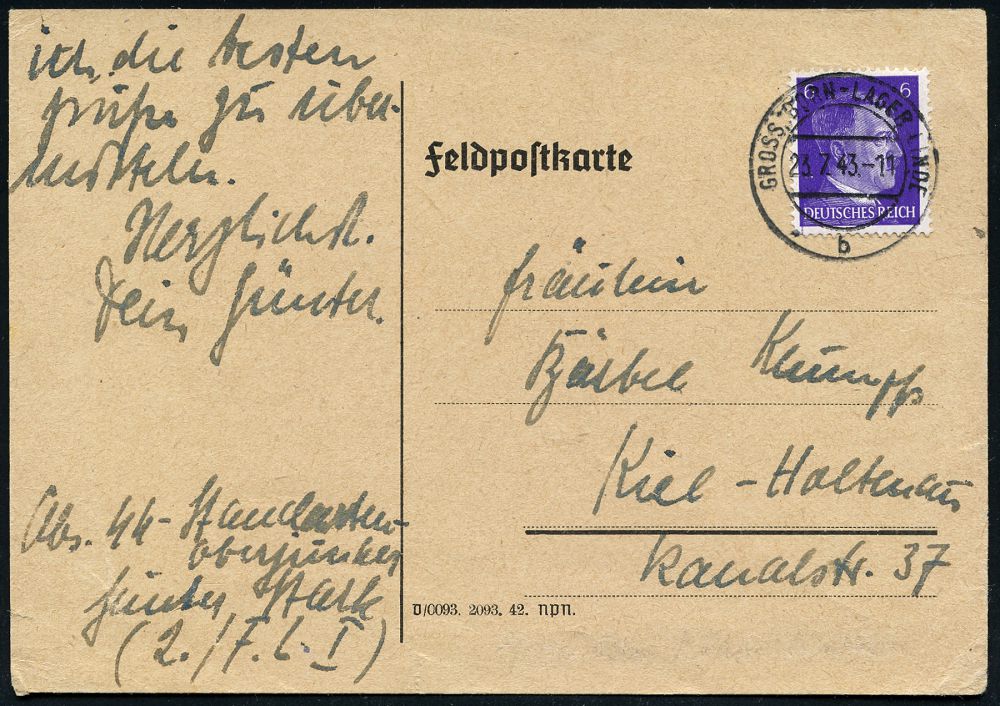 ich, die besten
Grüße zu über-
mitteln.
Herzlichst.
Dein Günter.
Abs. SS-Standarten-
oberjunker
Günter Stark
(2./F.L.I)
Feldpostkarte
6 6
DEUTSCHES REICH
GROSS BORN-LAGER LINDE
23.7.43.-11
b
Fräulein
Bärbel Klumpp
Kiel-Holtenau
Kanalstr. 37
D/0093. 2093. 42. npn.